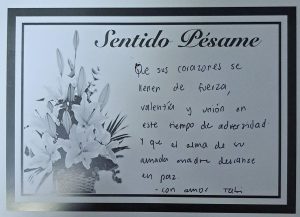 Sentido Pésame
Que sus corazones se
llenen de fuerza,
valentía y unión en
este tiempo de adversidad
y que el alma de su
amada madre descanse
en paz.
- con amor